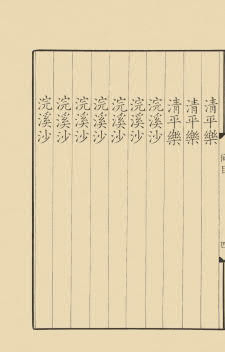 清平樂
清平樂
清平樂
浣溪沙
浣溪沙
浣溪沙
浣溪沙
浣溪沙
浣溪沙
浣溪沙